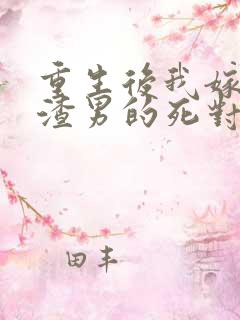 重生後我嫁
渣男的死對
田丰